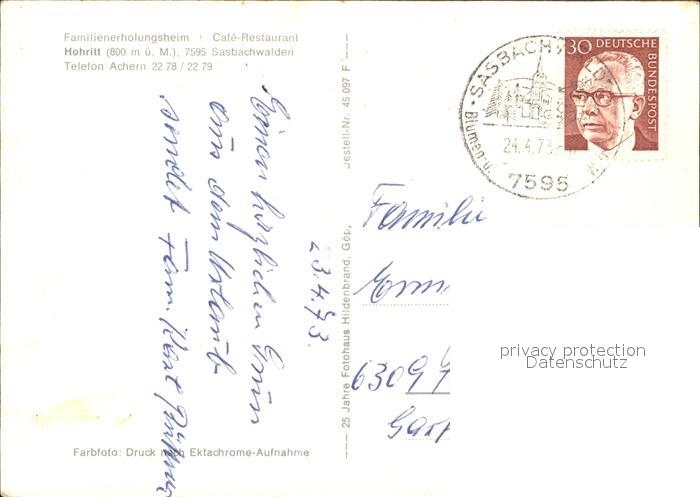 Familienerholungsheim | Café-Restaurant
Hohritt (800 m ü. M.), 7595 Sasbachwalden
Telefon Achern 22 78 / 22 79
23.4.73.
Einen herzlichen Gruss
aus dem Urlaub
sendet Fam. Karl
Farbfoto: Druck nach Ektachrome-Aufnahme
25 Jahre Fotohaus Hildenbrand, Göp.
Bestell-Nr. 45 097 F
SASBACHWALD
Blumen- u.
24.4.73
7595
30 DEUTSCHE
BUNDESPOST
Familie
6309
privacy protection
Datenschutz